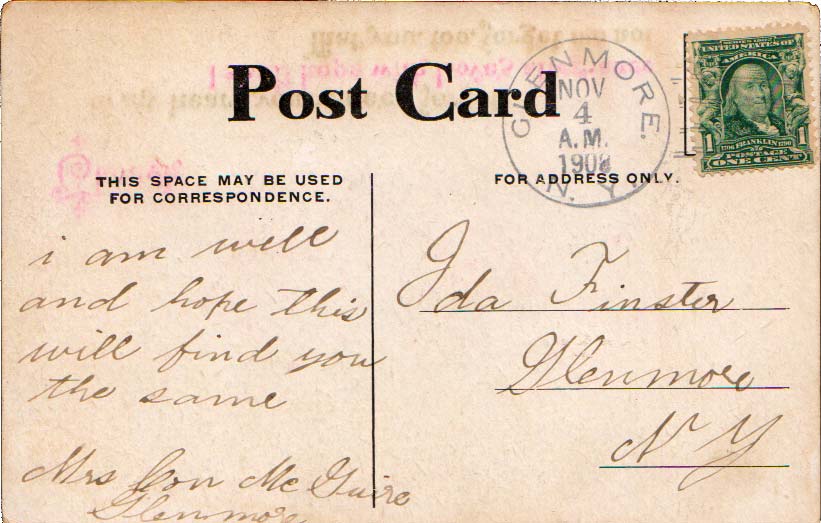 Post Card
GLENMORE.
NOV
4
A.M.
1908
N. Y.
UNITED STATES OF
AMERICA
1 1
FRANKLIN
POSTAGE
ONE CENT
THIS SPACE MAY BE USED
FOR CORRESPONDENCE.
FOR ADDRESS ONLY.
i am well
and hope this
will find you
the same
Mrs Con Mc Guire
Glenmore
Ida Finster
Glenmore
N Y